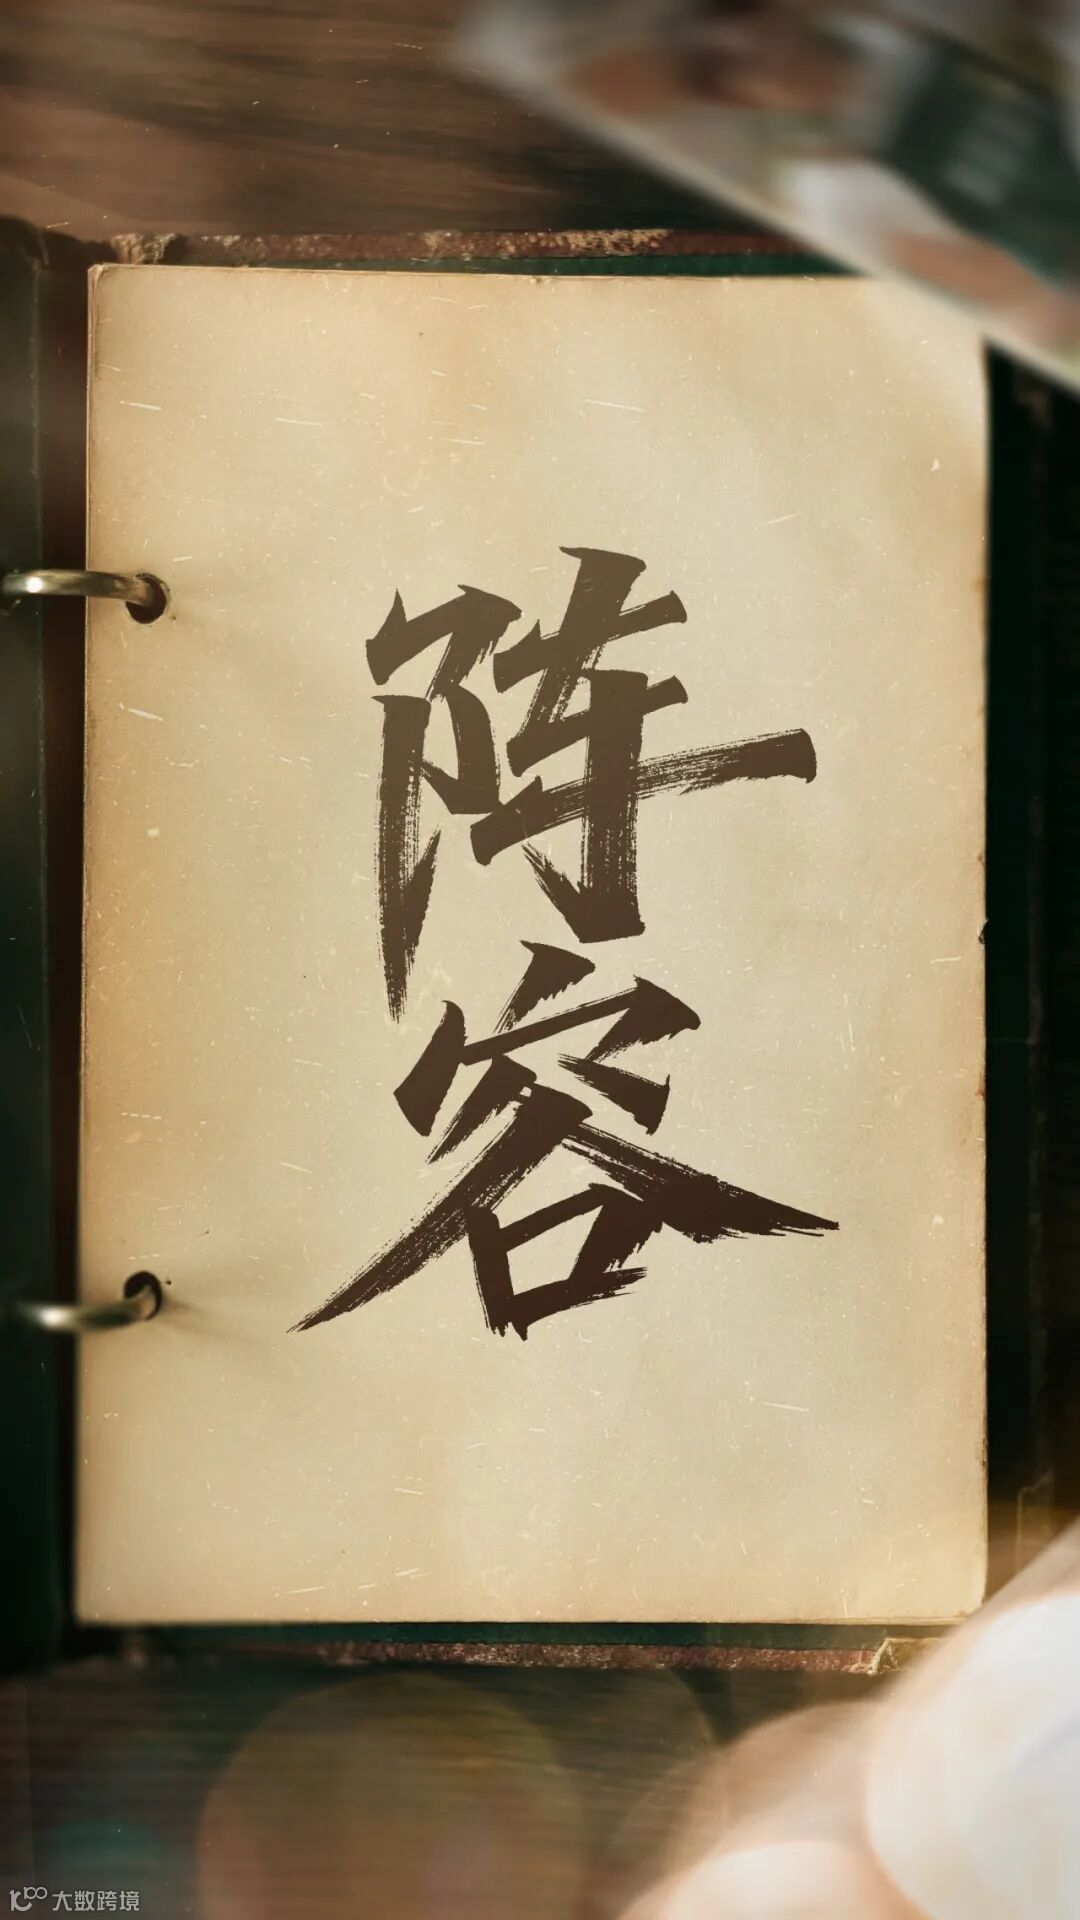 阵
容
大数跨境